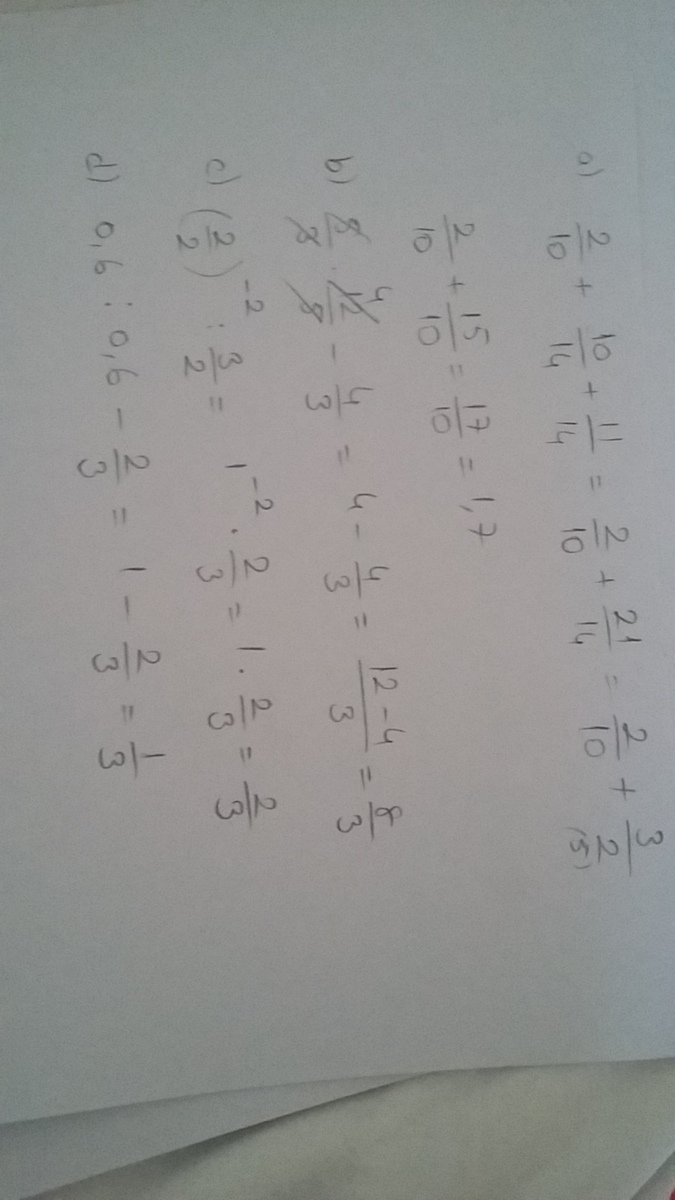 a) 2/10 + 10/14 + 11/14 = 2/10 + 21/14 = 2/10 + 3/2 (5)
2/10 + 15/10 = 17/10 = 1,7
b) 4 - 4/3 = 4 - 4/3 = 12-4/3 = 8/3
c) (2/2)^-2 : 3/2 = 1^-2 · 2/3 = 1 · 2/3 = 2/3
d) 0,6 : 0,6 - 2/3 = 1 - 2/3 = 1/3